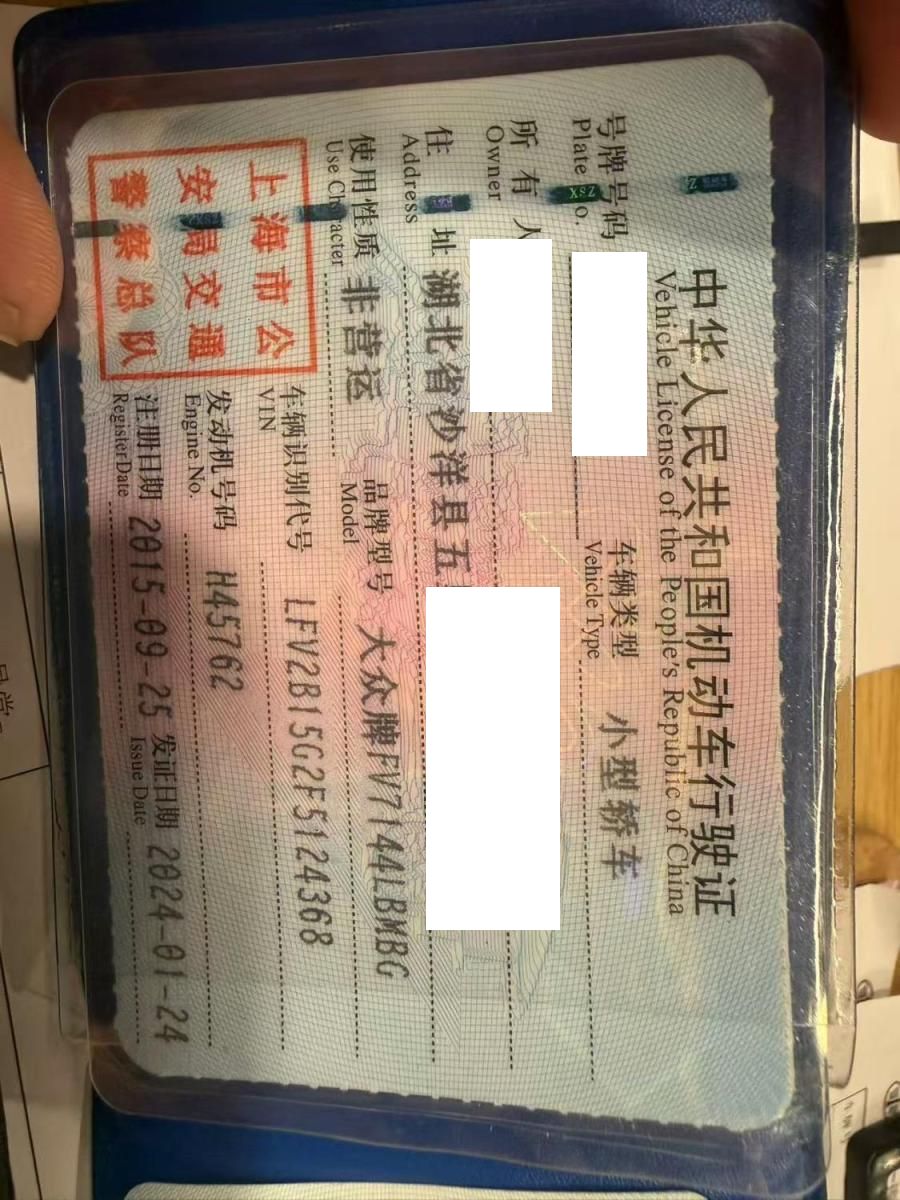 中华人民共和国机动车行驶证
Vehicle License of the People's Republic of China
号牌号码
Plate No.
车辆类型 小型轿车
Vehicle Type
所有人
Owner
住址 湖北省沙洋县五
Address
使用性质 非营运
Use Character
品牌型号 大众牌FV7144LBMBG
Model
上海市公
安局交通
警察总队
车辆识别代号 LFV2B15G2F5124368
VIN
发动机号码 H45762
Engine No.
注册日期 2015-09-25
Register Date
发证日期 2024-01-24
Issue Date